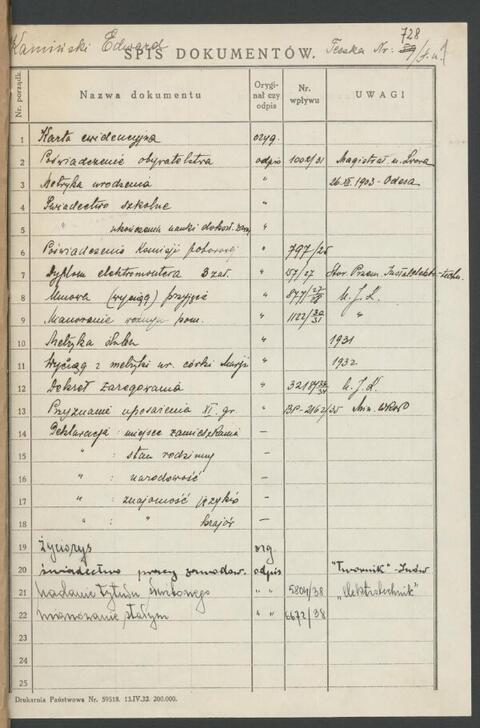 Kamiński Edward
Teczka Nr. 728
SPIS DOKUMENTÓW.
Nr. porządk. Nazwa dokumentu Orygi- nał czy odpis Nr. wpływu UWAGI
1 Karta ewidencyjna oryg.
2 Poświadczenie obywatelstwa odpis 1002/31 Magistrat m. Lwowa
3 Metryka urodzenia " 1903 - Odesa
4 Świadectwo szkolne "
5 " ukończenia nauki "
6 Poświadczenie Komisji poborowej " 797/25
7 Dyplom elektromontera 3 zał. " 57/27
8 Umowa (wyciąg) przyjęcie "
9 Mianowanie pom. " 1122/ "
10 Metryka ślubu " 1931
11 Wyciąg z metryki ur. córki Marji " 1932
12 Dekret zaszeregowania " 3218/
13 Przyznanie uposażenia XI. gr " BP-2162/35 Min. WRiOP
14 Deklaracja : miejsce zamieszkania —
15 " : stan rodzinny —
16 " : narodowość —
17 " : znajomość języków —
18 " : " krajów —
19 Życiorys oryg.
20 Świadectwo pracy zawodow. odpis
21 Nadanie tytułu " " 5804/38 "elektrotechnik"
22 mianowanie stałym " " 6672/38
23
24
25
Drukarnia Państwowa Nr. 59518. 13.IV.32. 200.000.